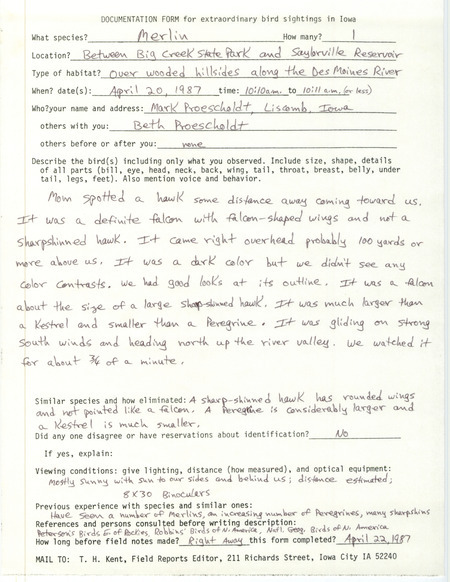 DOCUMENTATION FORM for extraordinary bird sightings in Iowa
What species? Merlin How many? 1
Location? Between Big Creek State Park and Saylorville Reservoir
Type of habitat? Over wooded hillsides along the Des Moines River
When? date(s): April 20, 1987 time: 10:10a.m. to 10:11 a.m. (or less)
Who?your name and address: Mark Proescholdt, Liscomb, Iowa
others with you: Beth Proescholdt
others before or after you: none
Describe the bird(s) including only what you observed. Include size, shape, details
of all parts (bill, eye, head, neck, back, wing, tail, throat, breast, belly, under
tail, legs, feet). Also mention voice and behavior.
Mom spotted a hawk some distance away coming toward us.
It was a definite falcon with falcon-shaped wings and not a
sharpshinned hawk. It came right overhead probably 100 yards or
more above us. It was a dark color but we didn't see any
color contrasts. We had good looks at its outline. It was a falcon
about the size of a large sharp-shinned hawk. It was much larger than
a Kestrel and smaller than a Peregrine. It was gliding on strong
south winds and heading north up the river valley. We watched it
for about 3/4 of a minute.
Similar species and how eliminated: A sharp-shinned hawk has rounded wings
and not pointed like a falcon. A Peregrine is considerably larger and
a Kestrel is much smaller.
Did any one disagree or have reservations about identification? No
If yes, explain:
Viewing conditions: give lighting, distance (how measured), and optical equipment:
Mostly sunny with sun to our sides and behind us; distance estimated;
8X30 Binoculars
Previous experience with species and similar ones:
Have seen a number of Merlins, an increasing number of Peregrines, many sharpshins
References and persons consulted before writing description:
Peterson's Birds E. of Rockies, Robbins' Birds of N. America, Nat'l. Geog. Birds of N. America
How long before field notes made? Right Away this form completed? April 22, 1987
MAIL TO: T. H. Kent, Field Reports Editor, 211 Richards Street, Iowa City IA 52240